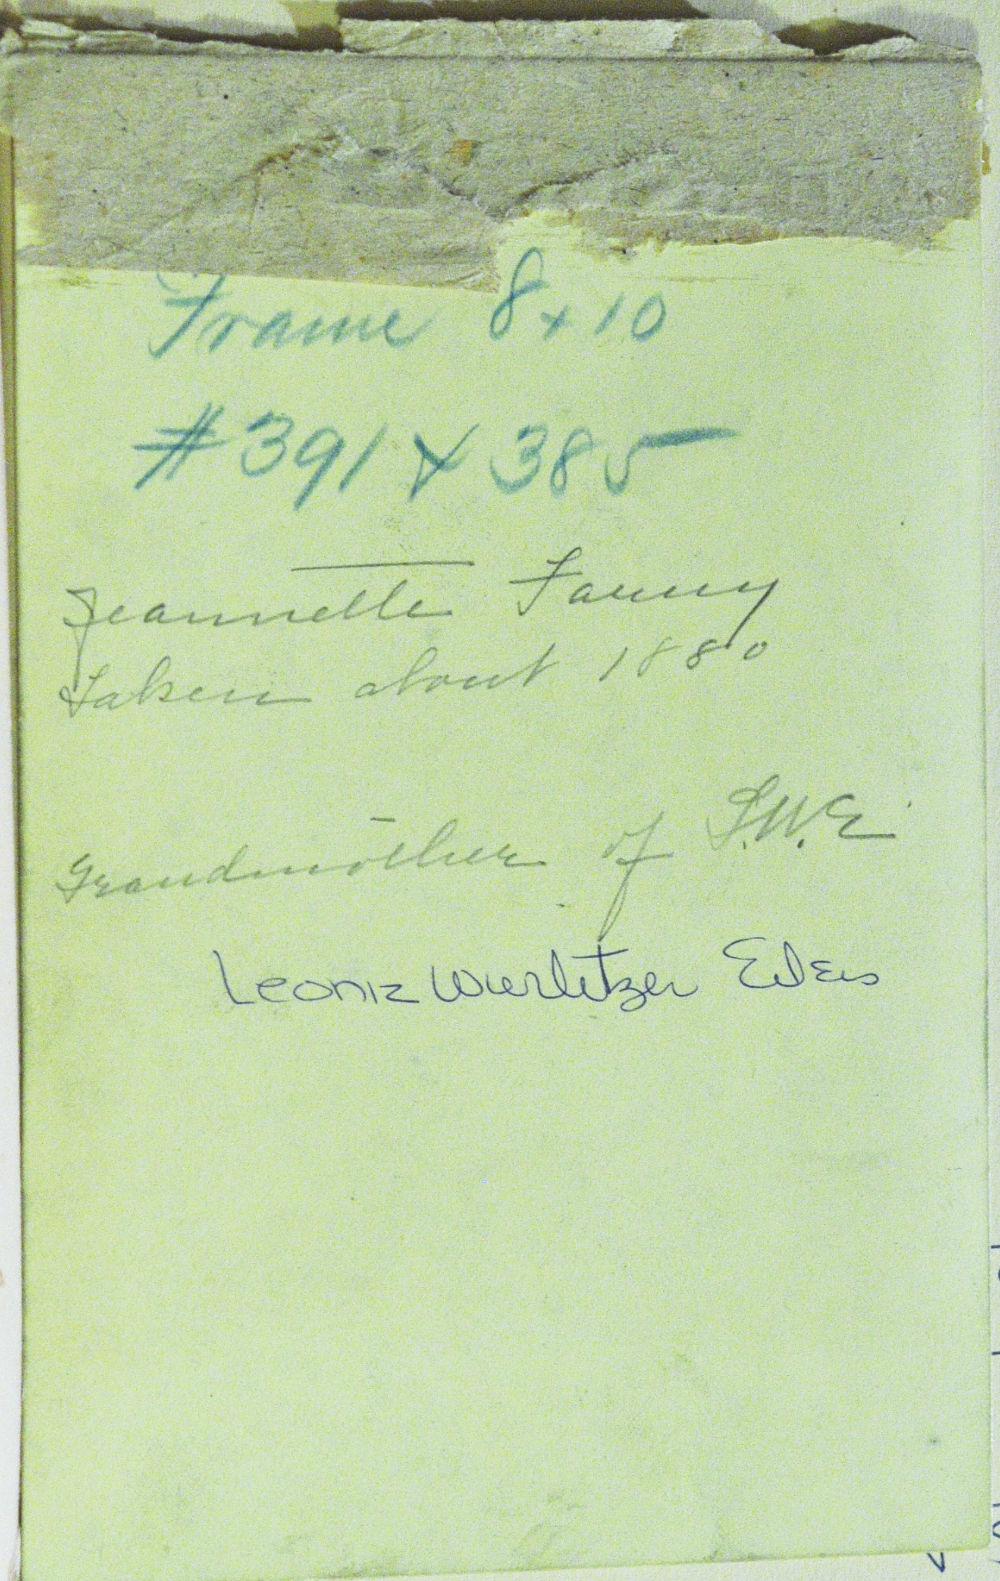 Frame 8x10
#391 & 385
Jeannette Fanny
Taken about 1880
Grandmother of L.W.E
Leonie Wurlitzer Eilers